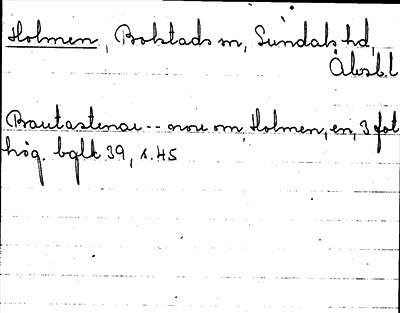 Holmen, Bolstads sn, Sundals hd,
Älvsb.l
Bautastenar -- norr om Holmen, en, 3 fot
hög. bglt 39, s. 45